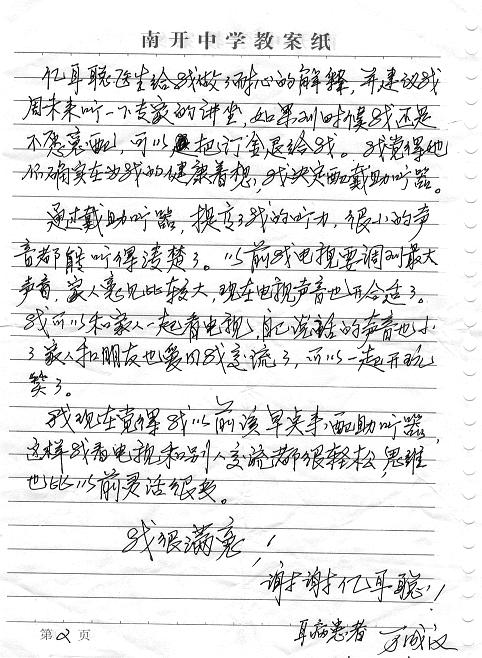 南开中学教案纸
亿耳聪医生给我做了耐心的解释,并建议我
周未来听一下专家的讲坐,如果到时候我还是
不愿意配,可以把订金退给我。我觉得他
们确实在为我的健康着想,我决定配戴助听器。
通过戴助听器,提高了我的听力,很小的声
音都能听得清楚了。以前我电视要调到最大
声音,家人意见比较大,现在电视声音也开合适了。
我可以和家人一起看电视,自己说话的声音也小
了家人和朋友也爱同我交流了,可以一起开玩
笑了。
我现在觉得我以前该早点来配助听器,
这样我看电视和别人交流都很轻松,思维
也比以前灵活很多。
我很满意!
谢谢亿耳聪!
耳病患者
第2页